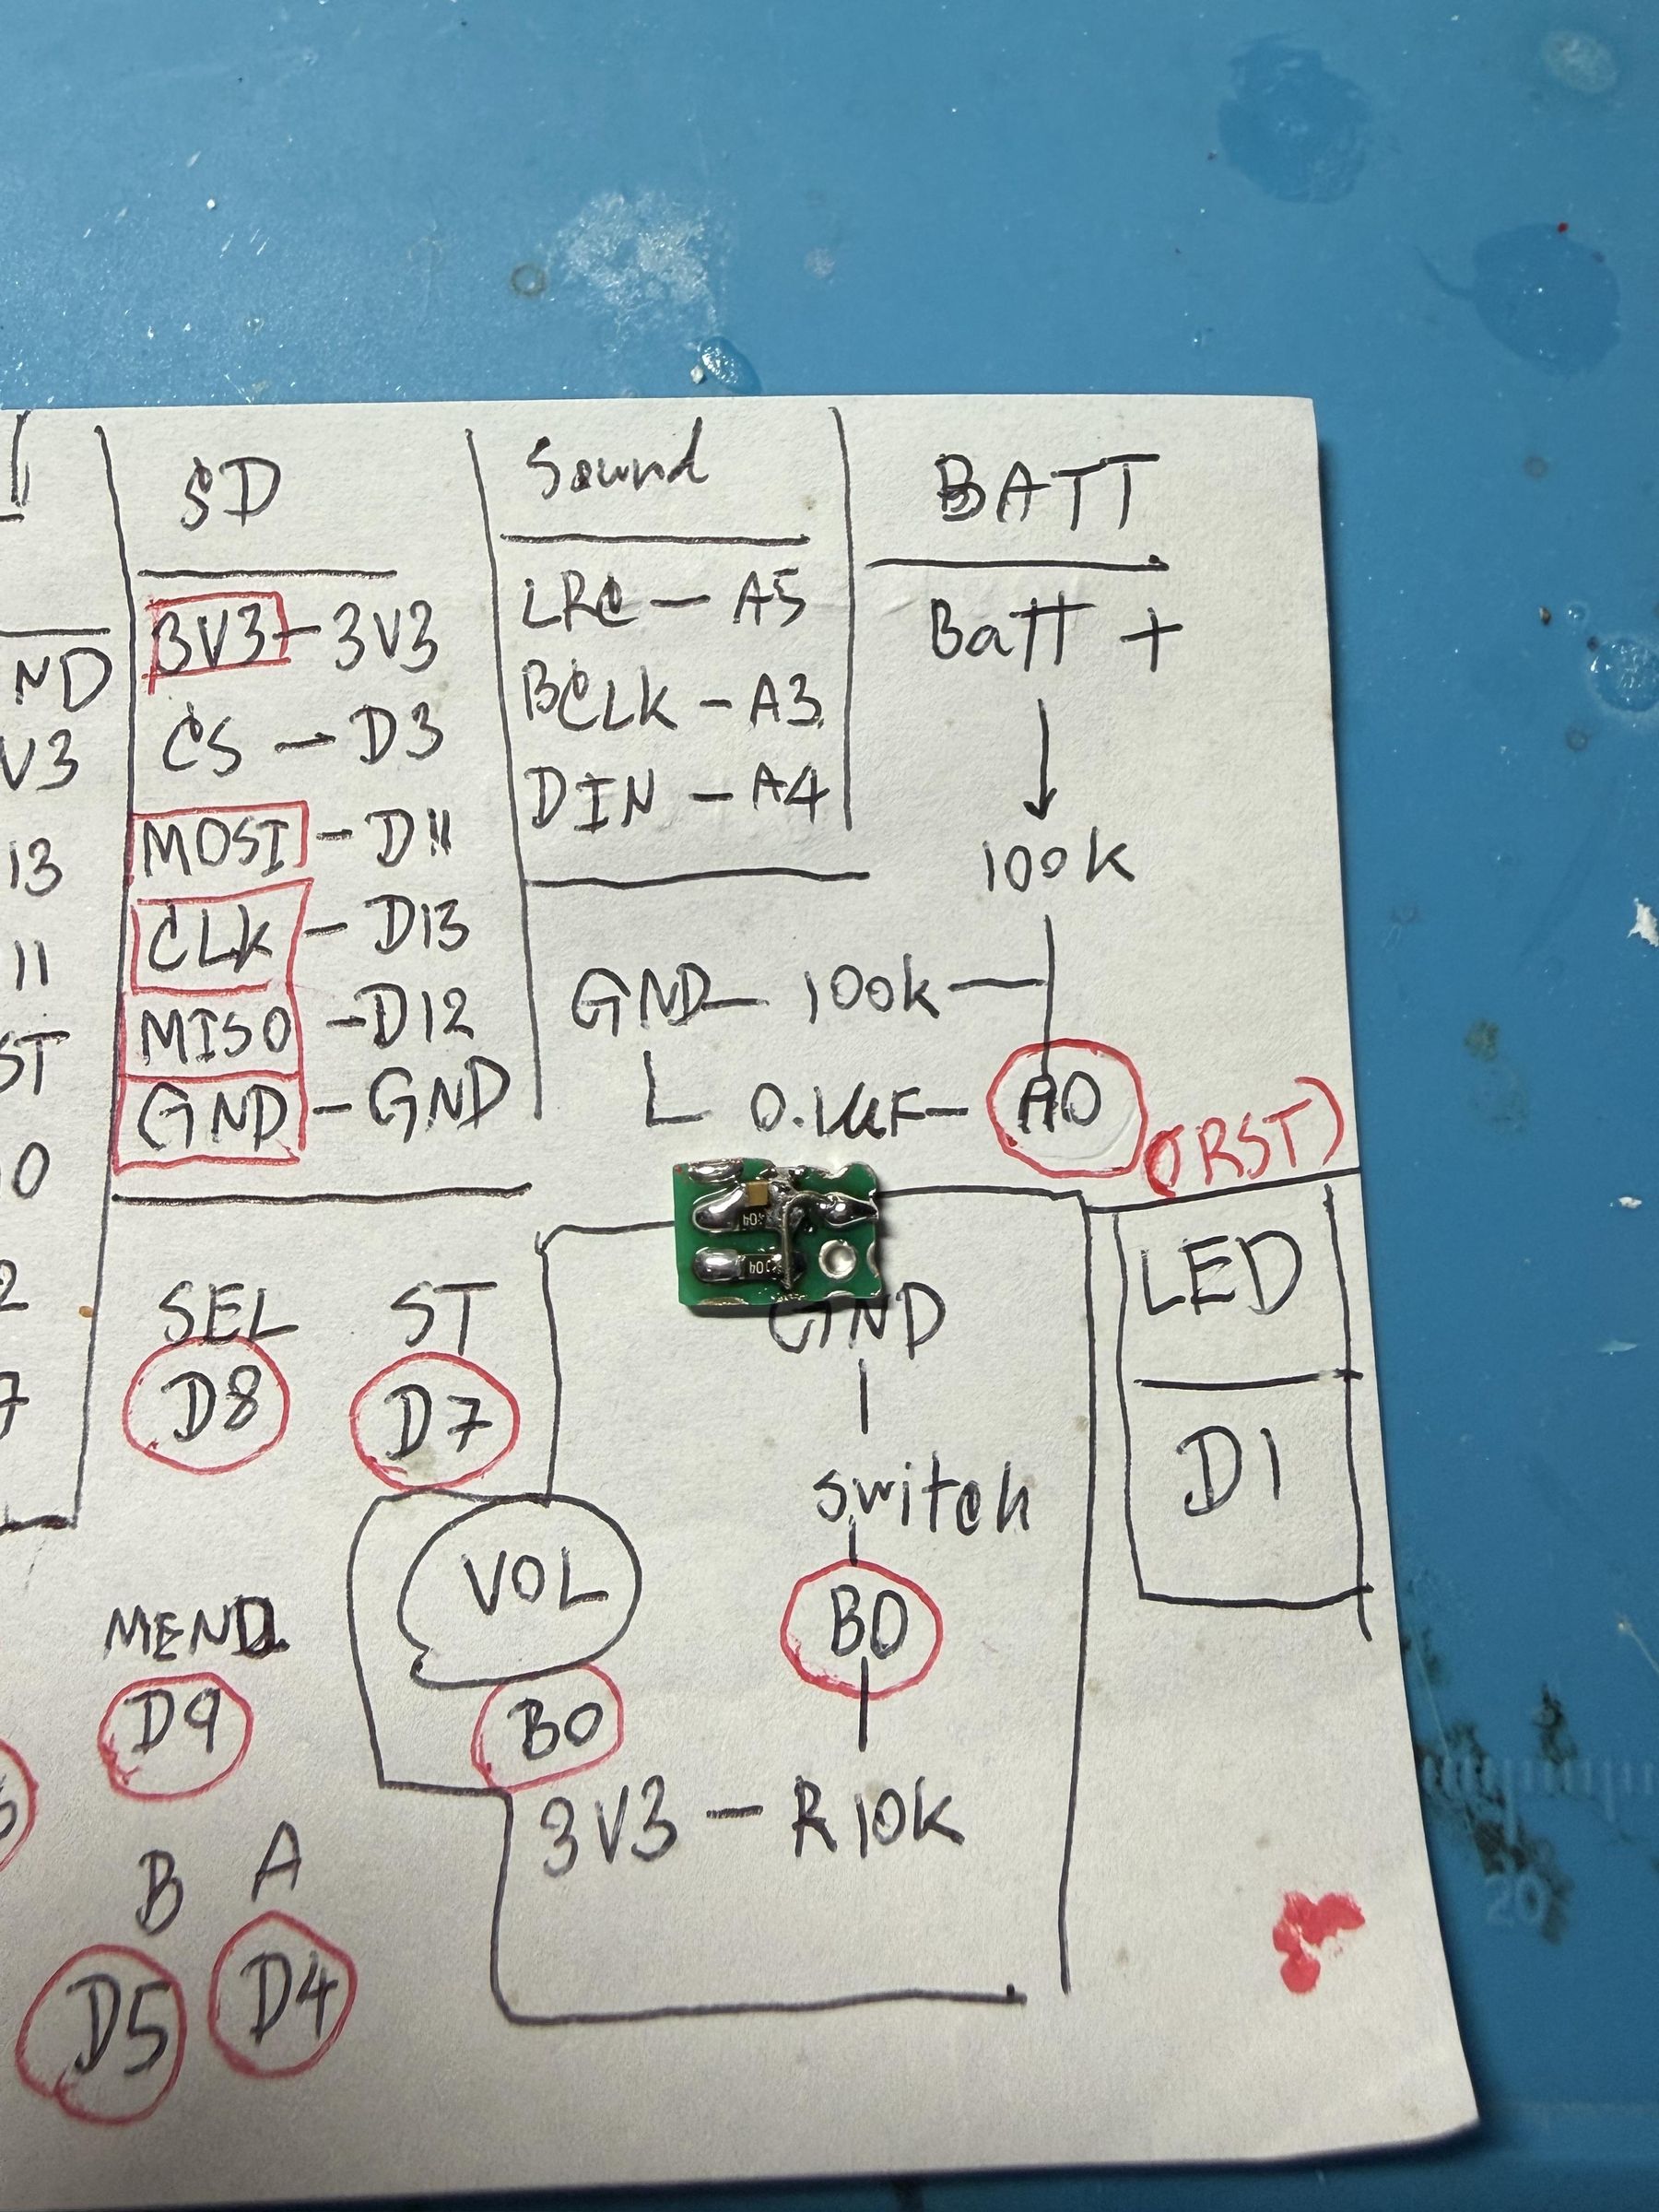 ND
V3
13
11
ST
0
2
7
SD
3V3 - 3V3
CS - D3
MOSI - D11
CLK - D13
MISO - D12
GND - GND
Sound
LRC - A5
BCLK - A3
DIN - A4
BATT
Batt +
100k
GND - 100k
0.1uF - A0
(RST)
104
104
SEL ST
D8 D7
VOL
B0
GND
switch
B0
3V3 - R 10K
LED
D1
D9
B A
D5 D4
20